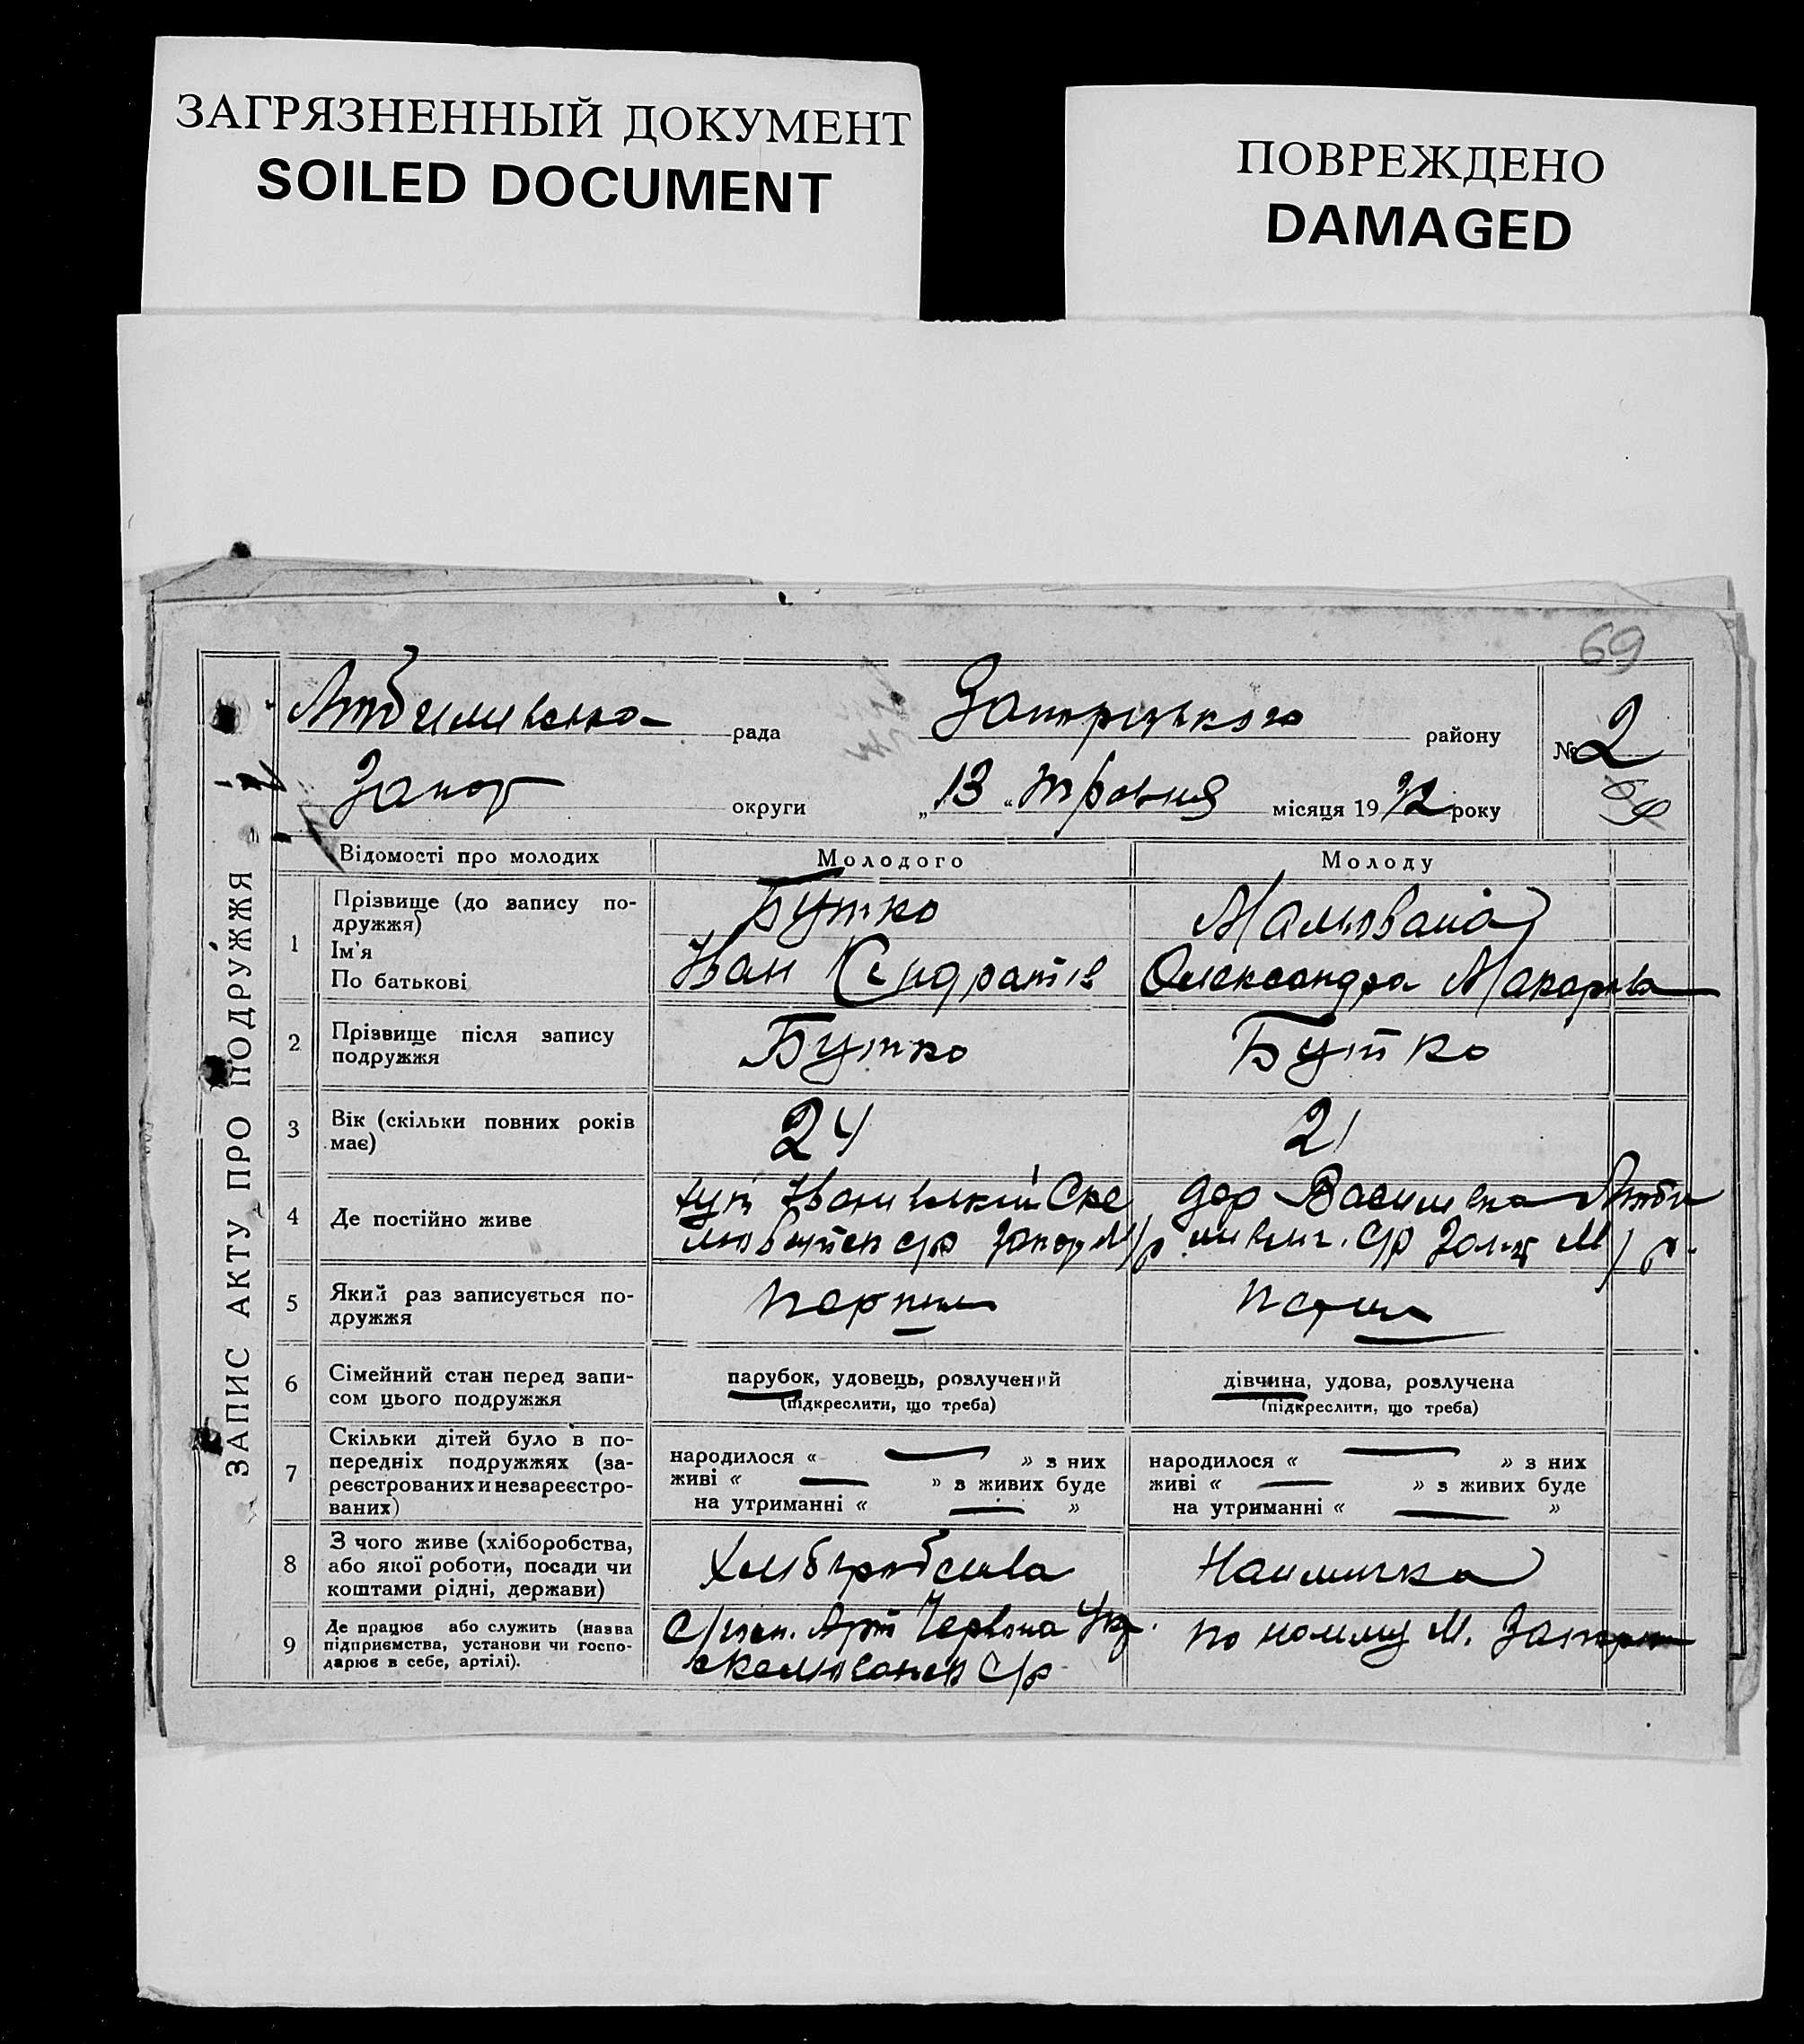 ЗАГРЯЗНЕННЫЙ ДОКУМЕНТ
SOILED DOCUMENT
ПОВРЕЖДЕНО
DAMAGED
69
ЗАПИС АКТУ ПРО ПОДРУЖЖЯ
рада
району
№ 2
2
Запор округи
„ 13 “ травня місяця 19 32 року
Відомості про молодих
Молодого
Молоду
1
Прізвище (до запису по-
дружжя)
Ім'я
По батькові
Бутко
Іван
Мальована
Олександра Макарівна
2
Прізвище після запису
подружжя
Бутко
Бутко
3
Вік (скільки повних років
має)
24
21
4
Де постійно живе
хут
с/р Запор М/р
с/р М/р.
5
Який раз записується по-
дружжя
6
Сімейний стан перед запи-
сом цього подружжя
парубок, удовець, розлучений
(підкреслити, що треба)
дівчина, удова, розлучена
(підкреслити, що треба)
7
Скільки дітей було в по-
передніх подружжях (за-
реєстрованих и незареєстро-
ваних)
народилося « — » з них
живі « — » з живих буде
на утриманні « — »
народилося « — » з них
живі « — » з живих буде
на утриманні « — »
8
З чого живе (хліборобства,
або якої роботи, посади чи
коштами рідні, держави)
Хліборобства
Наймичка
9
Де працює або служить (назва
підприємства, установи чи госпо-
дарює в себе, артілі).
Арт Червона
с/р
по найму М.